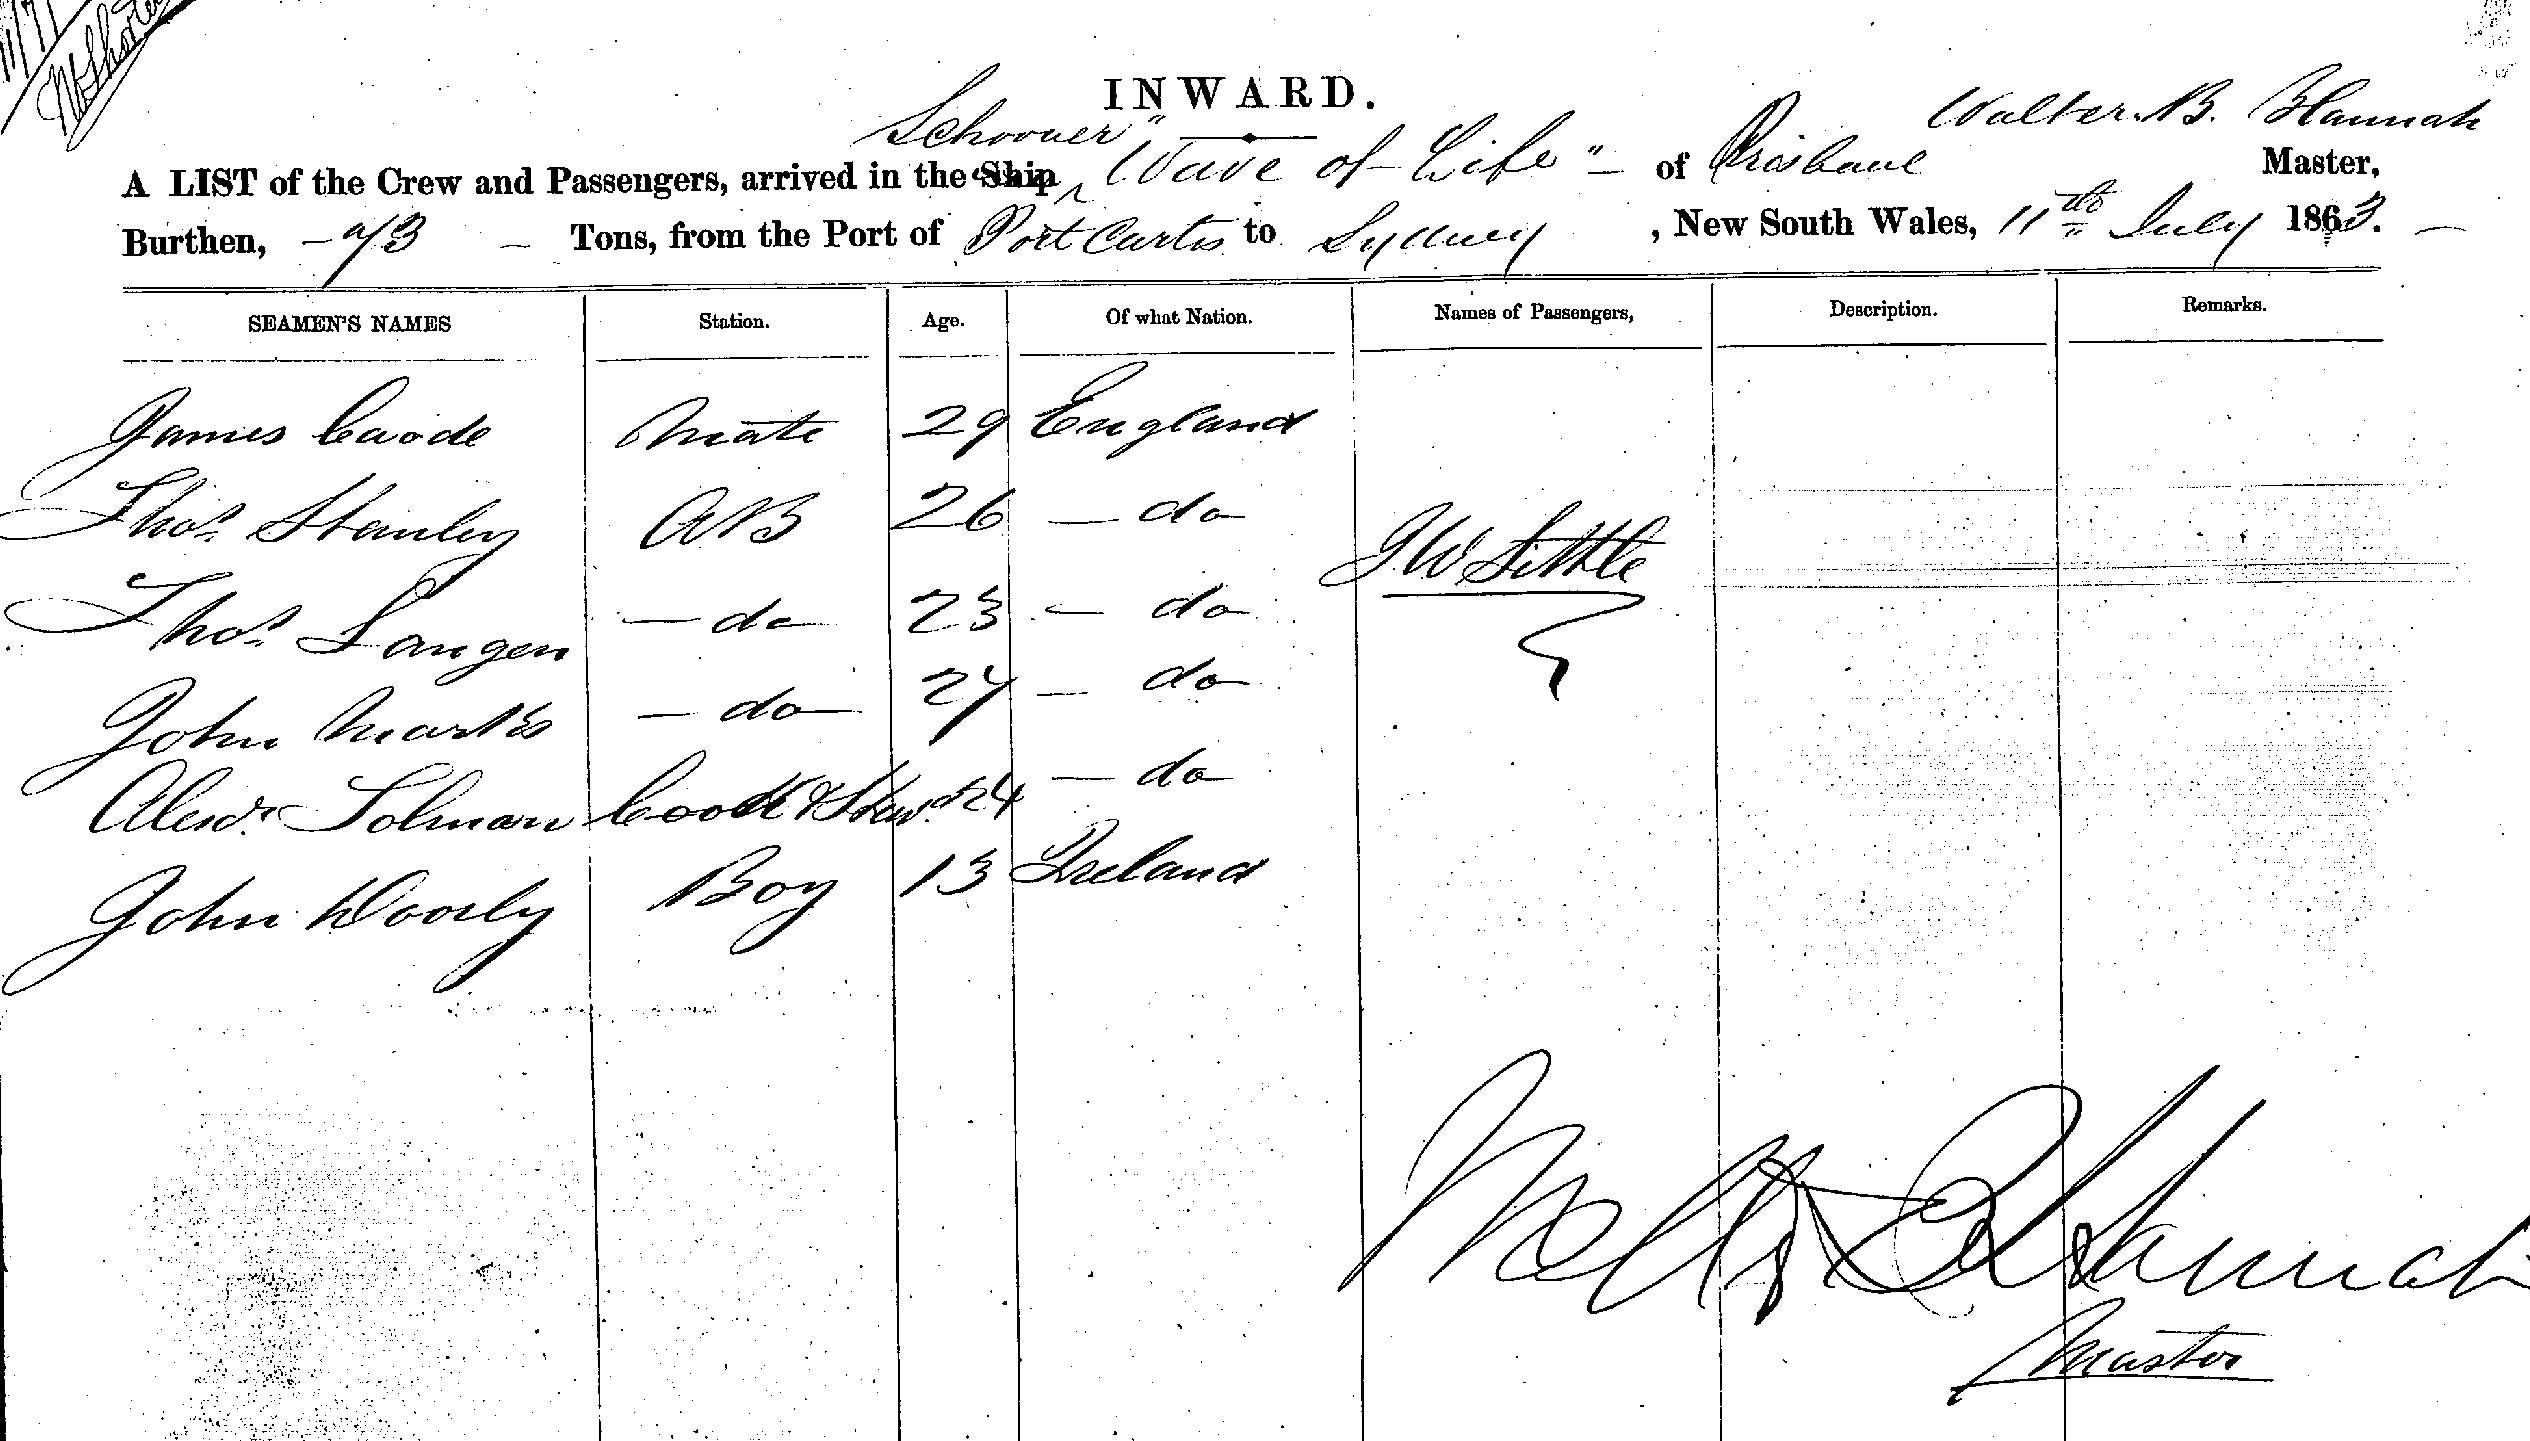 INWARD.
Schooner Walter. B. Hannah
A LIST of the Crew and Passengers, arrived in the Ship "Wave of Life" of Brisbane Master,
Burthen, - 73 - Tons, from the Port of Port Curtis to Sydney, New South Wales, 11th July 1863.
SEAMEN'S NAMES Station. Age. Of what Nation. Names of Passengers, Description. Remarks.
James Caode Mate 29 England
Thos Stanley AB 26 - do
J W Little
Thos Langen - do 23 - do
John Marks - do 27 - do
Alexr Tolman Cook & Stewd 24 - do
John Doorly Boy 13 Ireland
Walter B Hannah
Master